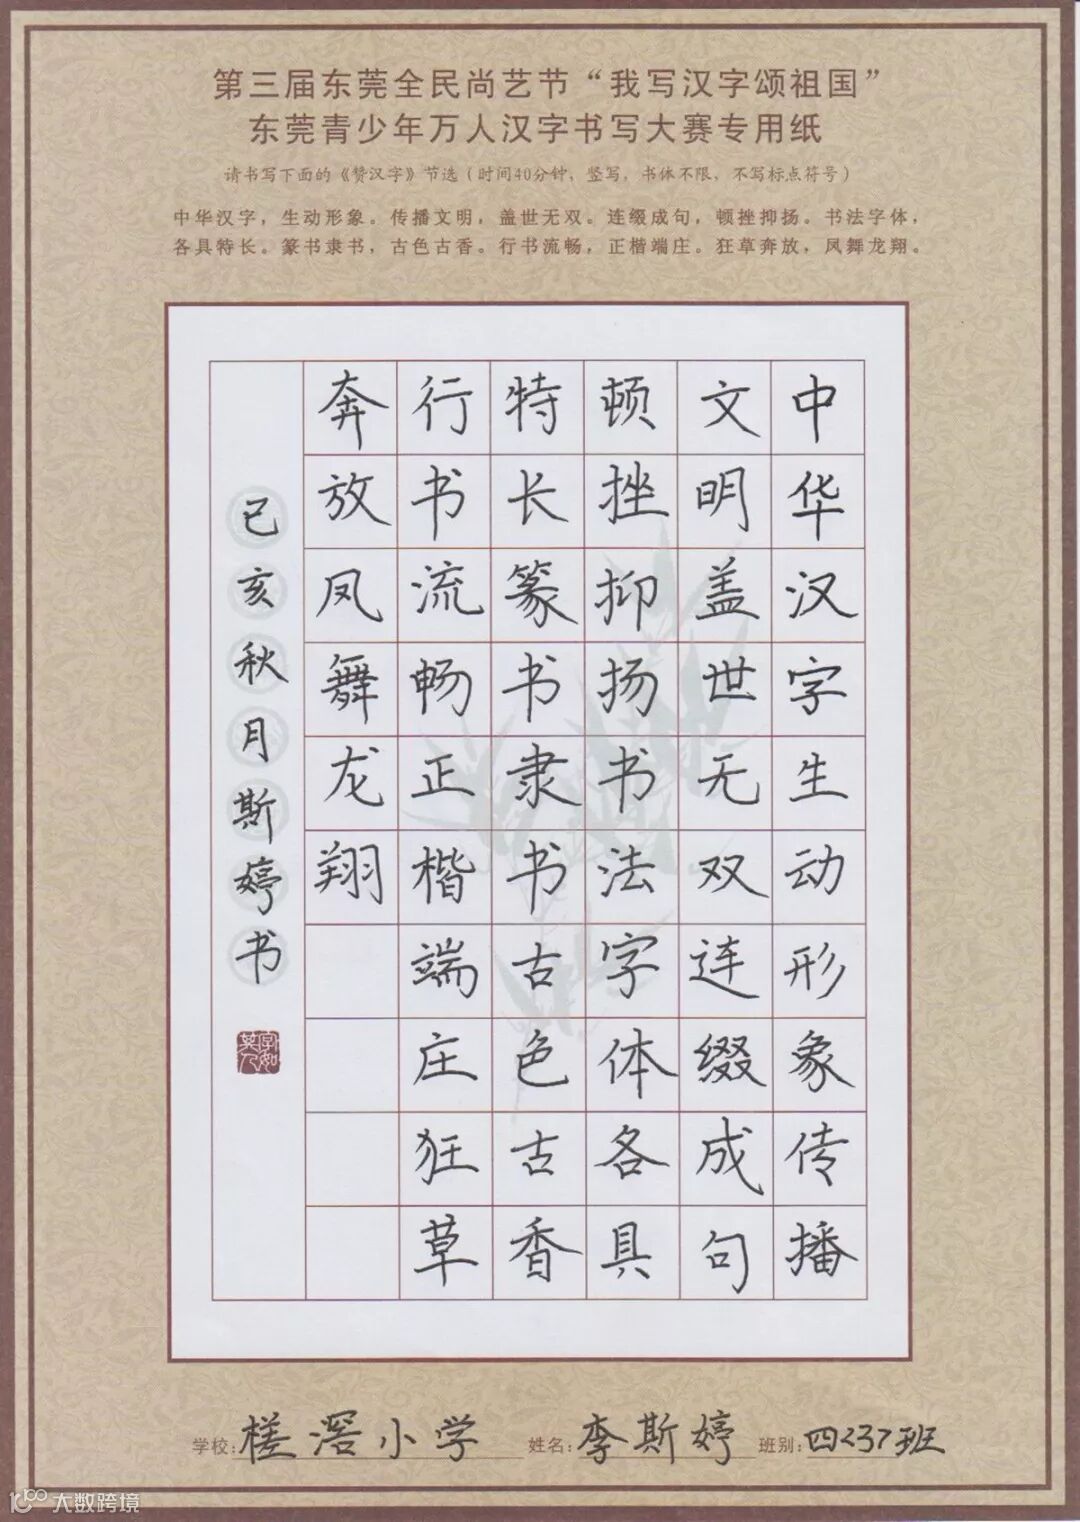 第三届东莞全民尚艺节“我写汉字颂祖国”
东莞青少年万人汉字书写大赛专用纸
请书写下面的《赞汉字》节选（时间40分钟，竖写，书体不限，不写标点符号）
中华汉字，生动形象。传播文明，盖世无双。连缀成句，顿挫抑扬。书法字体，
各具特长。篆书隶书，古色古香。行书流畅，正楷端庄。狂草奔放，凤舞龙翔。
中华汉字生动形象传播
文明盖世无双连缀成句
顿挫抑扬书法字体各具
特长篆书隶书古色古香
行书流畅正楷端庄狂草
奔放凤舞龙翔
己亥秋月斯婷书
学校:槎滘小学 姓名:李斯婷 班别:四<3>班
大数跨境